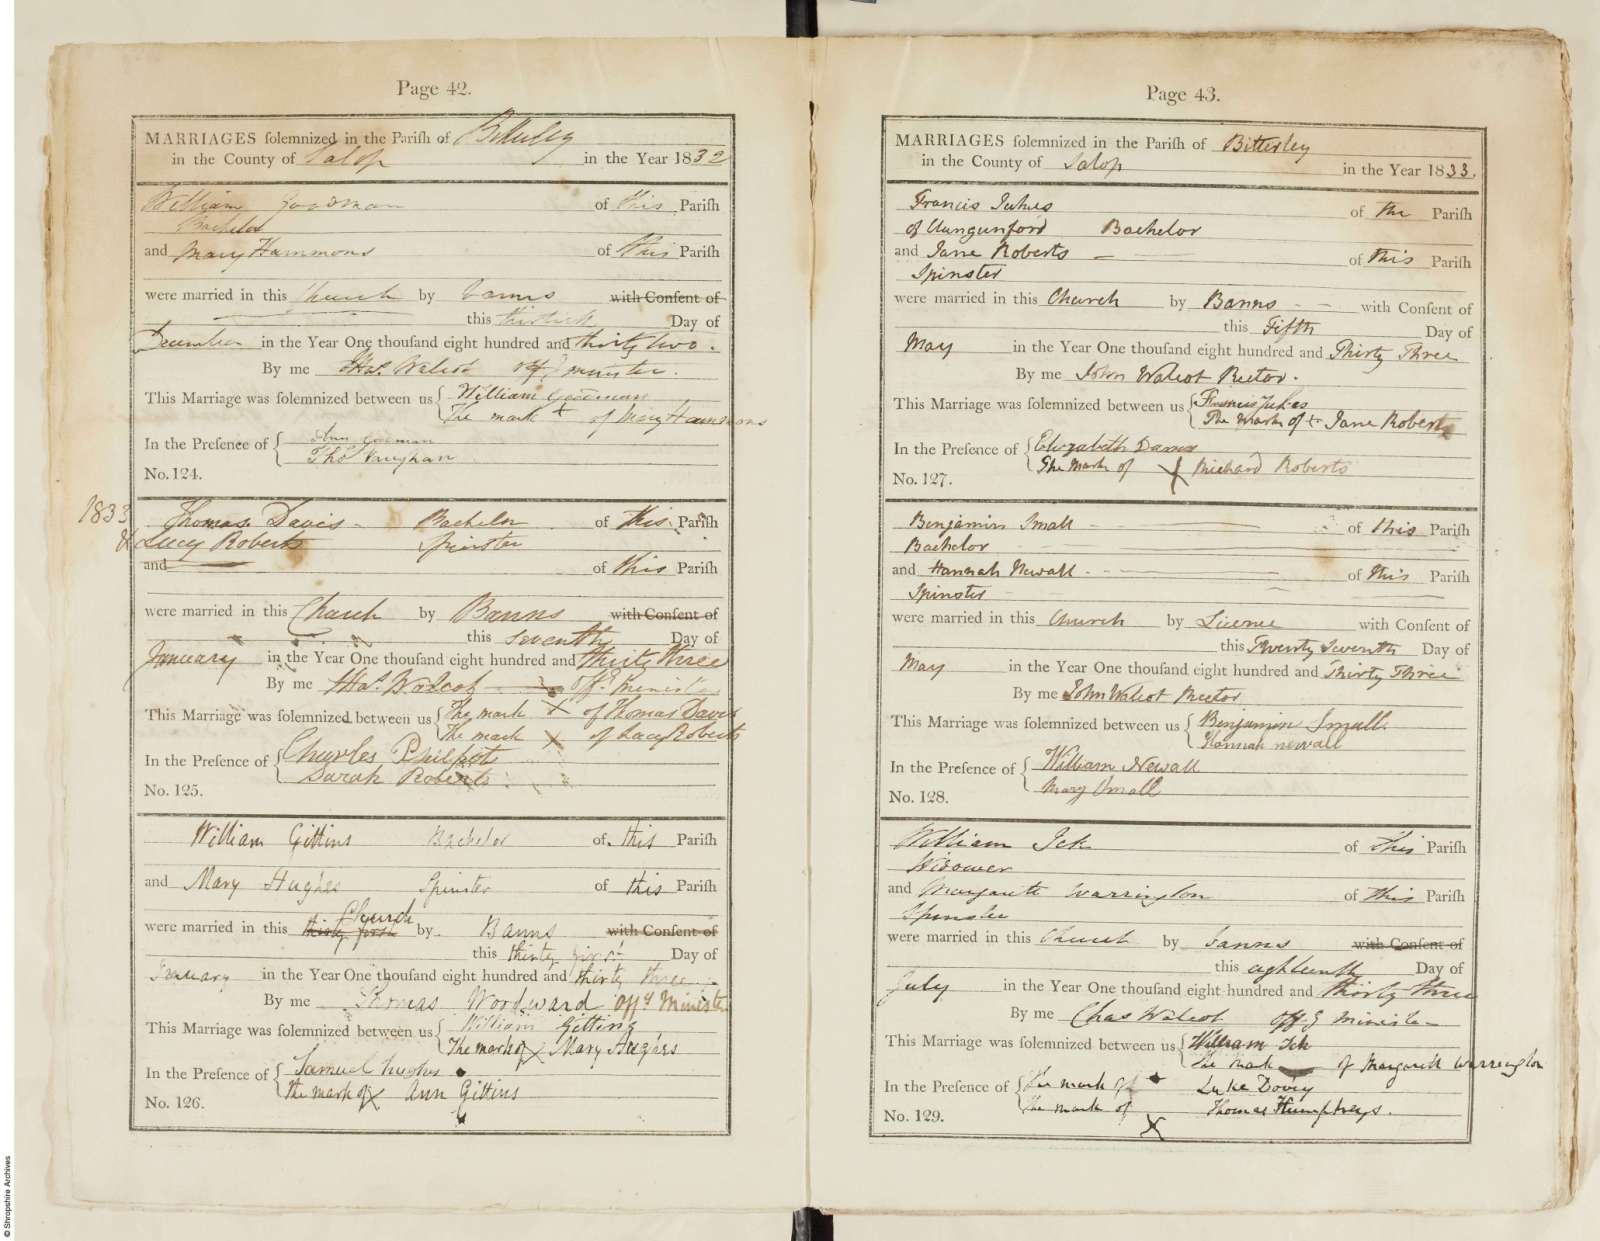 Page 42.
MARRIAGES solemnized in the Parish of Bitterley
in the County of Salop in the Year 1832
William Goodman of this Parish
Bachelor
and Mary Hammons of this Parish
were married in this Church by banns with Consent of
this thirtieth Day of
December in the Year One thousand eight hundred and thirty two.
By me Thos. Walcot offg minister.
This Marriage was solemnized between us William Goodman
The mark + of Mary Hammons
In the Presence of Ann
Thos Vaughan
No. 124.
1833
Thomas Davis - Bachelor of this Parish
& Lucy Roberts Spinster
and of this Parish
were married in this Church by Banns with Consent of
this seventh Day of
January in the Year One thousand eight hundred and thirty three
By me Thos. Walcot offg minister
This Marriage was solemnized between us The mark X of Thomas Davis
The mark X of Lucy Roberts
In the Presence of Charles Philpott
Sarah Roberts
No. 125.
William Gittins Bachelor of this Parish
and Mary Hughes Spinster of this Parish
Church
were married in this thirty first by Banns with Consent of
this thirty first Day of
January in the Year One thousand eight hundred and thirty three
By me Thomas Woodward offg Minister
This Marriage was solemnized between us William Gittins
The mark of X Mary Hughes
In the Presence of Samuel Hughes
the mark of X Ann Gittins
No. 126.
Page 43.
MARRIAGES solemnized in the Parish of Bitterley
in the County of Salop in the Year 1833.
Francis Jukes of the Parish
of Clungunford Bachelor
and Jane Roberts of this Parish
Spinster
were married in this Church by Banns with Consent of
this Fifth Day of
May in the Year One thousand eight hundred and Thirty Three
By me John Walcot Rector.
This Marriage was solemnized between us Francis Jukes
The Mark of + Jane Roberts
In the Presence of Elizabeth Davis
The mark of X Richard Roberts
No. 127.
Benjamin Small of this Parish
Bachelor
and Hannah Newall of this Parish
Spinster
were married in this Church by Licence with Consent of
this Twenty Seventh Day of
May in the Year One thousand eight hundred and Thirty Three
By me John Walcot Rector.
This Marriage was solemnized between us Benjamin Small
Hannah newall
In the Presence of William Newall
Mary Small
No. 128.
William Ick of this Parish
Widower
and Margarette Warrington of this Parish
Spinster
were married in this Church by banns with Consent of
this eighteenth Day of
July in the Year One thousand eight hundred and thirty three
By me Chas Walcot offg minister
This Marriage was solemnized between us William Ick
The mark of Margarett Warrington
In the Presence of The mark of Luke
The mark of X Thomas Humphreys.
No. 129.
© Shropshire Archives